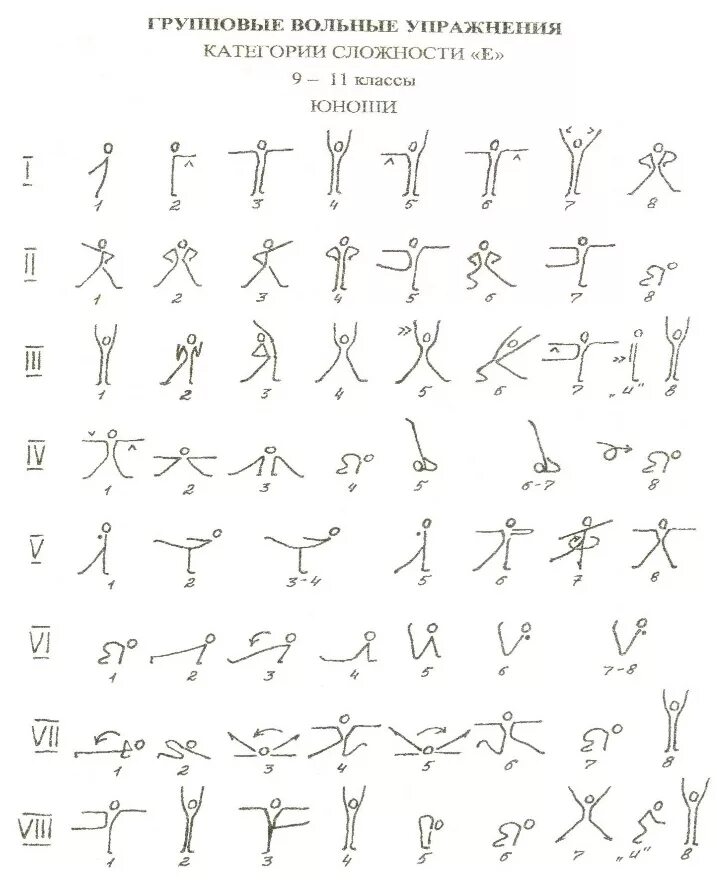 ГРУППОВЫЕ ВОЛЬНЫЕ УПРАЖНЕНИЯ
КАТЕГОРИИ СЛОЖНОСТИ «Е»
9 – 11 классы
ЮНОШИ
I
1 2 3 4 5 6 7 8
II
1 2 3 4 5 6 7 8
III
1 2 3 4 5 6 7 „и" 8
IV
1 2 3 4 5 6-7 8
V
1 2 3-4 5 6 7 8
VI
1 2 3 4 5 6 7-8
VII
1 2 3 4 5 6 7 8
VIII
1 2 3 4 5 6 7 „и" 8